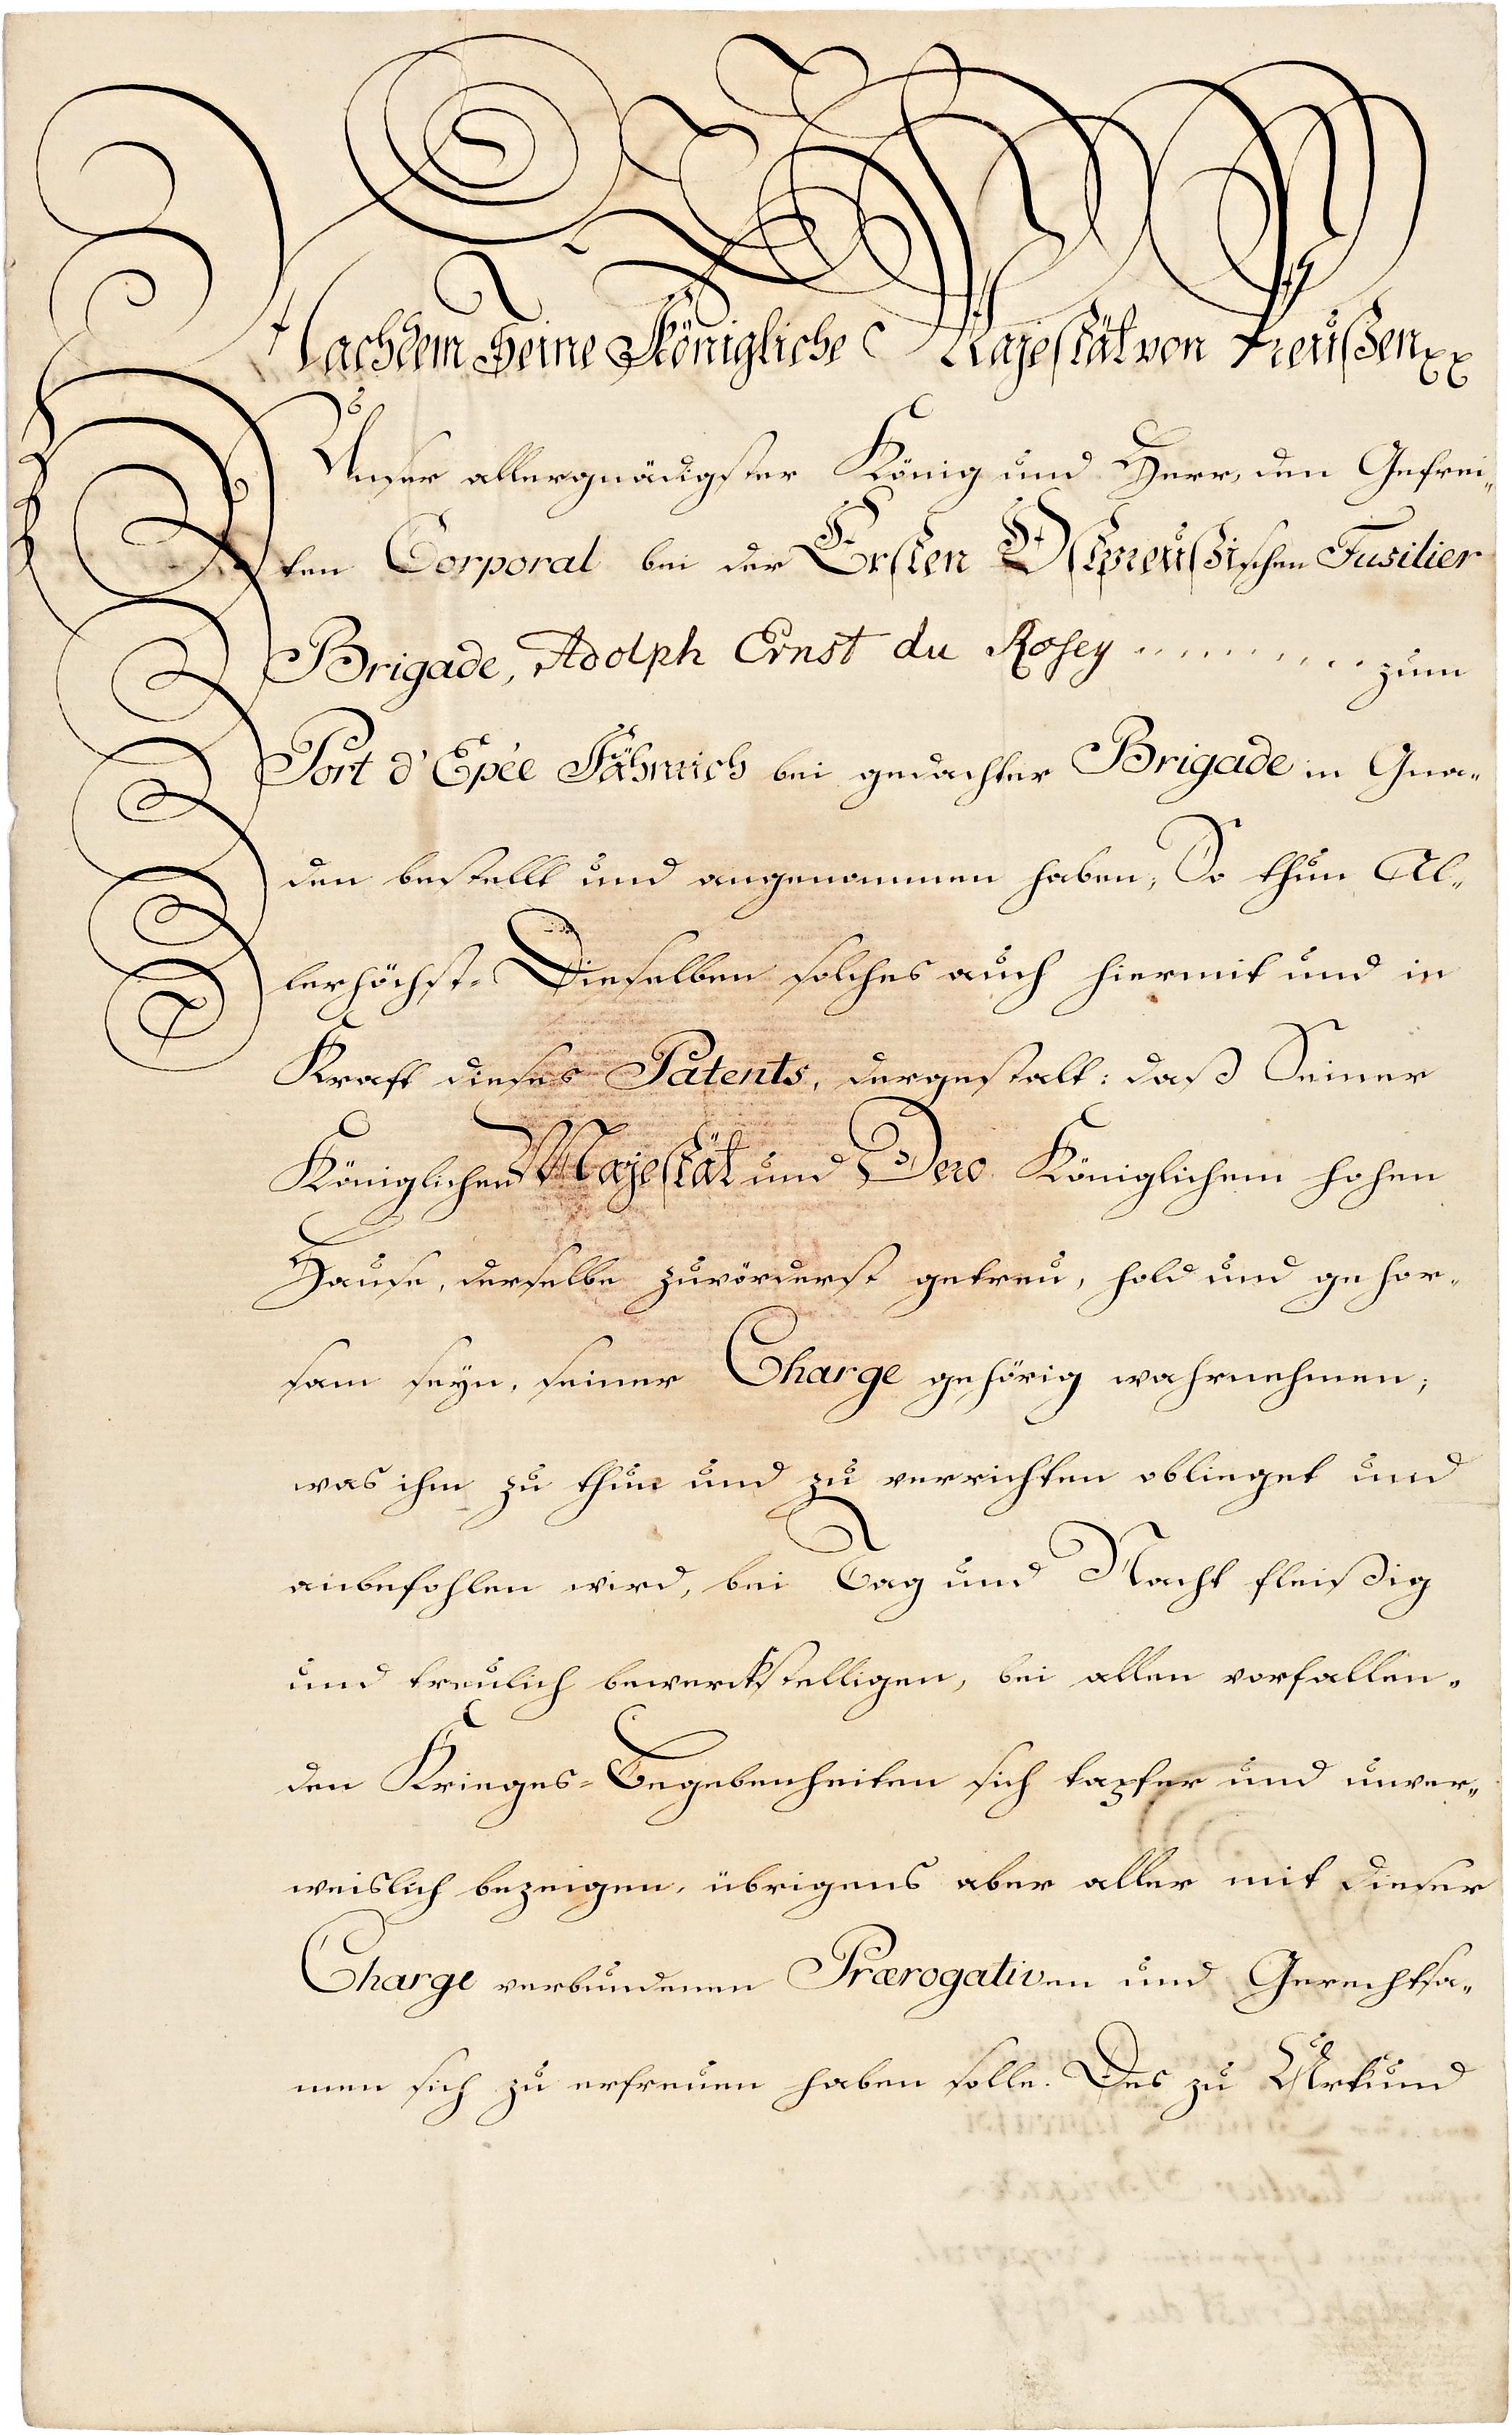 Nachdem Seine Königliche Majestät von Preußen xx
Unser allergnädigster König und Herr, den Gefrei„
ten Corporal bei der Ersten Ostpreußischen Fusilier
Brigade, Adolph Ernst du Rosey ........... zum
Port d'Epée Fähnrich bei gedachter Brigade in Gna„
den bestellt und angenommen haben; So thun Al„
lerhöchst-Dieselben solches auch hiermit und in
Kraft dieses Patents, dergestalt: daß Seiner
Königlichen Majestät und Dero Königlichem hohen
Hause, derselbe zuvörderst getreu, hold und gehor„
sam seyn, seiner Charge gehörig wahrnehmen;
was ihm zu thun und zu verrichten oblieget und
anbefohlen wird, bei Tag und Nacht fleißig
und treulich bewerckstelligen, bei allen vorfallen„
den Krieges-Begebenheiten sich tapfer und unver„
weislich bezeigen, übrigens aber aller mit dieser
Charge verbundenen Prærogativen und Gerechtsa„
men sich zu erfreuen haben solle. Des zu Urkund